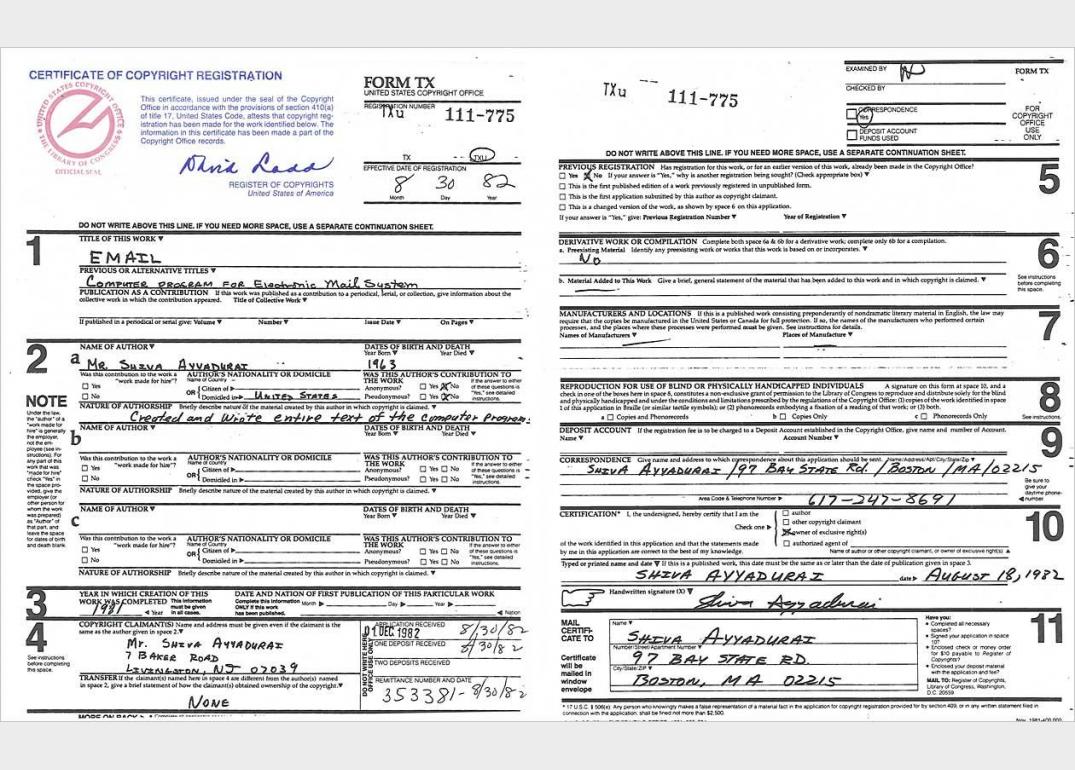 CERTIFICATE OF COPYRIGHT REGISTRATION
UNITED STATES COPYRIGHT OFFICE
THE LIBRARY OF CONGRESS
OFFICIAL SEAL
This certificate, issued under the seal of the Copyright
Office in accordance with the provisions of section 410(a)
of title 17, United States Code, attests that copyright reg-
istration has been made for the work identified below. The
information in this certificate has been made a part of the
Copyright Office records.
David Ladd
REGISTER OF COPYRIGHTS
United States of America
FORM TX
UNITED STATES COPYRIGHT OFFICE
REGISTRATION NUMBER
TXu 111-775
TX TXU
EFFECTIVE DATE OF REGISTRATION
8 30 82
Month Day Year
DO NOT WRITE ABOVE THIS LINE. IF YOU NEED MORE SPACE, USE A SEPARATE CONTINUATION SHEET.
1
TITLE OF THIS WORK ▼
EMAIL
PREVIOUS OR ALTERNATIVE TITLES ▼
COMPUTER PROGRAM FOR Electronic Mail System
PUBLICATION AS A CONTRIBUTION If this work was published as a contribution to a periodical, serial, or collection, give information about the
collective work in which the contribution appeared. Title of Collective Work ▼
If published in a periodical or serial give: Volume ▼ Number ▼ Issue Date ▼ On Pages ▼
2
NOTE
Under the law,
the "author" of a
"work made for
hire" is generally
the employer,
not the em-
ployee (see in-
structions). For
any part of this
work that was
"made for hire"
check "Yes" in
the space pro-
vided, give the
employer (or
other person for
whom the work
was prepared)
as "Author" of
that part, and
leave the space
for dates of birth
and death blank.
a
NAME OF AUTHOR ▼
DATES OF BIRTH AND DEATH
Year Born ▼ Year Died ▼
MR. SHIVA AYYADURAI 1963
Was this contribution to the work a
"work made for hire"?
Yes
No
AUTHOR'S NATIONALITY OR DOMICILE
Name of Country
OR Citizen of
Domiciled in UNITED STATES
WAS THIS AUTHOR'S CONTRIBUTION TO
THE WORK
Anonymous? Yes No
Pseudonymous? Yes No
If the answer to either
of these questions is
"Yes," see detailed
instructions.
NATURE OF AUTHORSHIP Briefly describe nature of the material created by this author in which copyright is claimed. ▼
Created and Wrote entire text of the Computer Program.
b
NAME OF AUTHOR ▼
DATES OF BIRTH AND DEATH
Year Born ▼ Year Died ▼
Was this contribution to the work a
"work made for hire"?
Yes
No
AUTHOR'S NATIONALITY OR DOMICILE
Name of country
OR Citizen of
Domiciled in
WAS THIS AUTHOR'S CONTRIBUTION TO
THE WORK
Anonymous? Yes No
Pseudonymous? Yes No
If the answer to either
of these questions is
"Yes," see detailed
instructions.
NATURE OF AUTHORSHIP Briefly describe nature of the material created by this author in which copyright is claimed. ▼
c
NAME OF AUTHOR ▼
DATES OF BIRTH AND DEATH
Year Born ▼ Year Died ▼
Was this contribution to the work a
"work made for hire"?
Yes
No
AUTHOR'S NATIONALITY OR DOMICILE
Name of Country
OR Citizen of
Domiciled in
WAS THIS AUTHOR'S CONTRIBUTION TO
THE WORK
Anonymous? Yes No
Pseudonymous? Yes No
If the answer to either
of these questions is
"Yes," see detailed
instructions.
NATURE OF AUTHORSHIP Briefly describe nature of the material created by this author in which copyright is claimed. ▼
3
YEAR IN WHICH CREATION OF THIS
WORK WAS COMPLETED This information
must be given
in all cases.
1981 Year
DATE AND NATION OF FIRST PUBLICATION OF THIS PARTICULAR WORK
Complete this information
ONLY if this work
has been published.
Month Day Year
Nation
4
See instructions
before completing
this space.
COPYRIGHT CLAIMANT(S) Name and address must be given even if the claimant is the
same as the author given in space 2.▼
Mr. SHIVA AYYADURAI
7 BAKER ROAD
LIVINGSTON, NJ 07039
TRANSFER If the claimant(s) named here in space 4 are different from the author(s) named
in space 2, give a brief statement of how the claimant(s) obtained ownership of the copyright.▼
NONE
DO NOT WRITE HERE
OFFICE USE ONLY
APPLICATION RECEIVED
01 DEC 1982 8/30/82
ONE DEPOSIT RECEIVED
8/30/82
TWO DEPOSITS RECEIVED
REMITTANCE NUMBER AND DATE
353381- 8/30/82
MORE ON BACK
TXu 111-775
EXAMINED BY
CHECKED BY
CORRESPONDENCE
Yes
DEPOSIT ACCOUNT
FUNDS USED
FORM TX
FOR
COPYRIGHT
OFFICE
USE
ONLY
DO NOT WRITE ABOVE THIS LINE. IF YOU NEED MORE SPACE, USE A SEPARATE CONTINUATION SHEET.
5
PREVIOUS REGISTRATION Has registration for this work, or for an earlier version of this work, already been made in the Copyright Office?
Yes No If your answer is "Yes," why is another registration being sought? (Check appropriate box) ▼
This is the first published edition of a work previously registered in unpublished form.
This is the first application submitted by this author as copyright claimant.
This is a changed version of the work, as shown by space 6 on this application.
If your answer is "Yes," give: Previous Registration Number ▼ Year of Registration ▼
6
See instructions
before completing
this space.
DERIVATIVE WORK OR COMPILATION Complete both space 6a & 6b for a derivative work; complete only 6b for a compilation.
a. Preexisting Material Identify any preexisting work or works that this work is based on or incorporates. ▼
NO
b. Material Added to This Work Give a brief, general statement of the material that has been added to this work and in which copyright is claimed. ▼
7
MANUFACTURERS AND LOCATIONS If this is a published work consisting preponderantly of nondramatic literary material in English, the law may
require that the copies be manufactured in the United States or Canada for full protection. If so, the names of the manufacturers who performed certain
processes, and the places where these processes were performed must be given. See instructions for details.
Names of Manufacturers ▼ Places of Manufacture ▼
8
See instructions.
REPRODUCTION FOR USE OF BLIND OR PHYSICALLY HANDICAPPED INDIVIDUALS A signature on this form at space 10, and a
check in one of the boxes here in space 8, constitutes a non-exclusive grant of permission to the Library of Congress to reproduce and distribute solely for the blind
and physically handicapped and under the conditions and limitations prescribed by the regulations of the Copyright Office: (1) copies of the work identified in space
1 of this application in Braille (or similar tactile symbols); or (2) phonorecords embodying a fixation of a reading of that work; or (3) both.
a Copies and Phonorecords b Copies Only c Phonorecords Only
9
DEPOSIT ACCOUNT If the registration fee is to be charged to a Deposit Account established in the Copyright Office, give name and number of Account.
Name ▼ Account Number ▼
CORRESPONDENCE Give name and address to which correspondence about this application should be sent. Name/Address/Apt/City/State/Zip ▼
SHIVA AYYADURAI /97 BAY STATE Rd. /BOSTON /MA/02215
Be sure to
give your
daytime phone
number.
Area Code & Telephone Number 617-247-8691
10
CERTIFICATION* I, the undersigned, hereby certify that I am the
Check one
author
other copyright claimant
owner of exclusive right(s)
authorized agent of
Name of author or other copyright claimant, or owner of exclusive right(s) ▲
of the work identified in this application and that the statements made
by me in this application are correct to the best of my knowledge.
Typed or printed name and date ▼ If this is a published work, this date must be the same as or later than the date of publication given in space 3.
SHIVA AYYADURAI date AUGUST 18, 1982
Handwritten signature (X) ▼
Shiva Ayyadurai
11
MAIL
CERTIFI-
CATE TO
Certificate
will be
mailed in
window
envelope
Name ▼
SHIVA AYYADURAI
Number/Street/Apartment Number ▼
97 BAY STATE RD.
City/State/ZIP ▼
BOSTON, MA 02215
Have you:
• Completed all necessary
spaces?
• Signed your application in space
10?
• Enclosed check or money order
for $10 payable to Register of
Copyrights?
• Enclosed your deposit material
with the application and fee?
MAIL TO: Register of Copyrights,
Library of Congress, Washington,
D.C. 20559
* 17 U.S.C. § 506(e): Any person who knowingly makes a false representation of a material fact in the application for copyright registration provided for by section 409, or in any written statement filed in
connection with the application, shall be fined not more than $2,500.